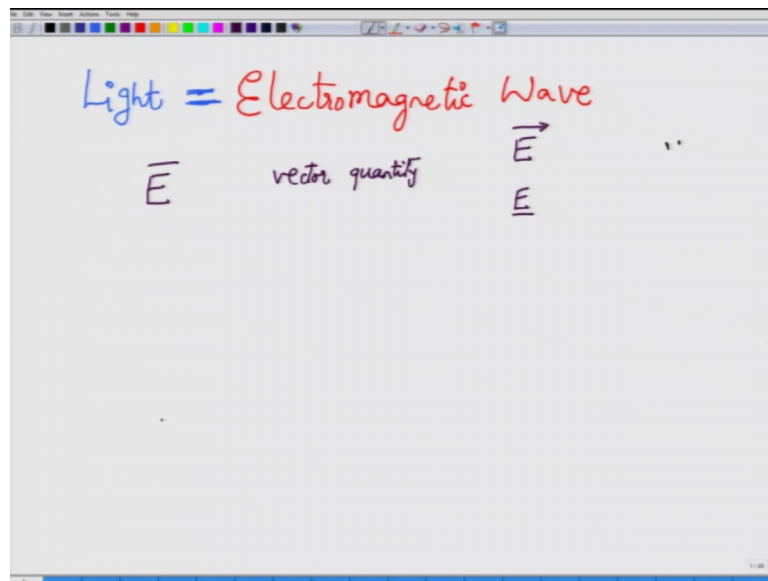 File Edit View Insert Actions Tools Help
Light = Electromagnetic Wave
E̅ vector quantity E⃗
E̲
1/20